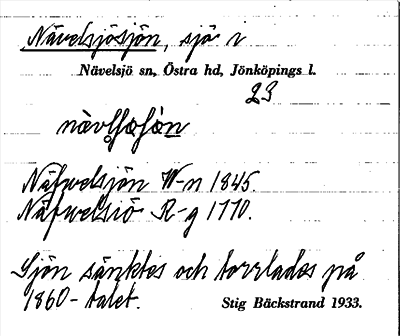 Nävelsjösjön, sjö i
Nävelsjö sn, Östra hd, Jönköpings l.
23
Näfvelsjön W-n 1845.
Näfwelsiö R-g 1770.
Sjön sänktes och torrlades på
1860-talet. Stig Bäckstrand 1933.